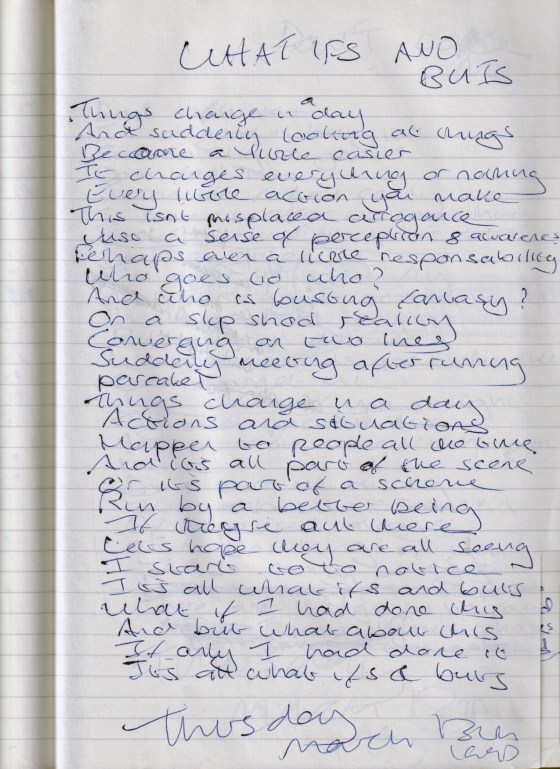 WHAT IFS AND
BUTS
Things change in a day
And suddenly looking at things
Become a little easier
It changes everything or nothing
Every little action you make
This isnt misplaced arrogance
Just a sense of perception & awareness
Perhaps even a little responsability
Who goes to who?
And who is busting fantasy?
On a slip shod reality
Converging on two lines
Suddenly meeting after running
paralel
Things change in a day
Actions and situations
Happen to people all the time
And its all part of the scene
Or its part of a scheme
Run by a better being
If they're out there
Lets hope they are all seeing
I start to to notice
Its all what ifs and buts
What if I had done this
And but what about this
If only I had done it
Its all what ifs & buts
Thursday
March